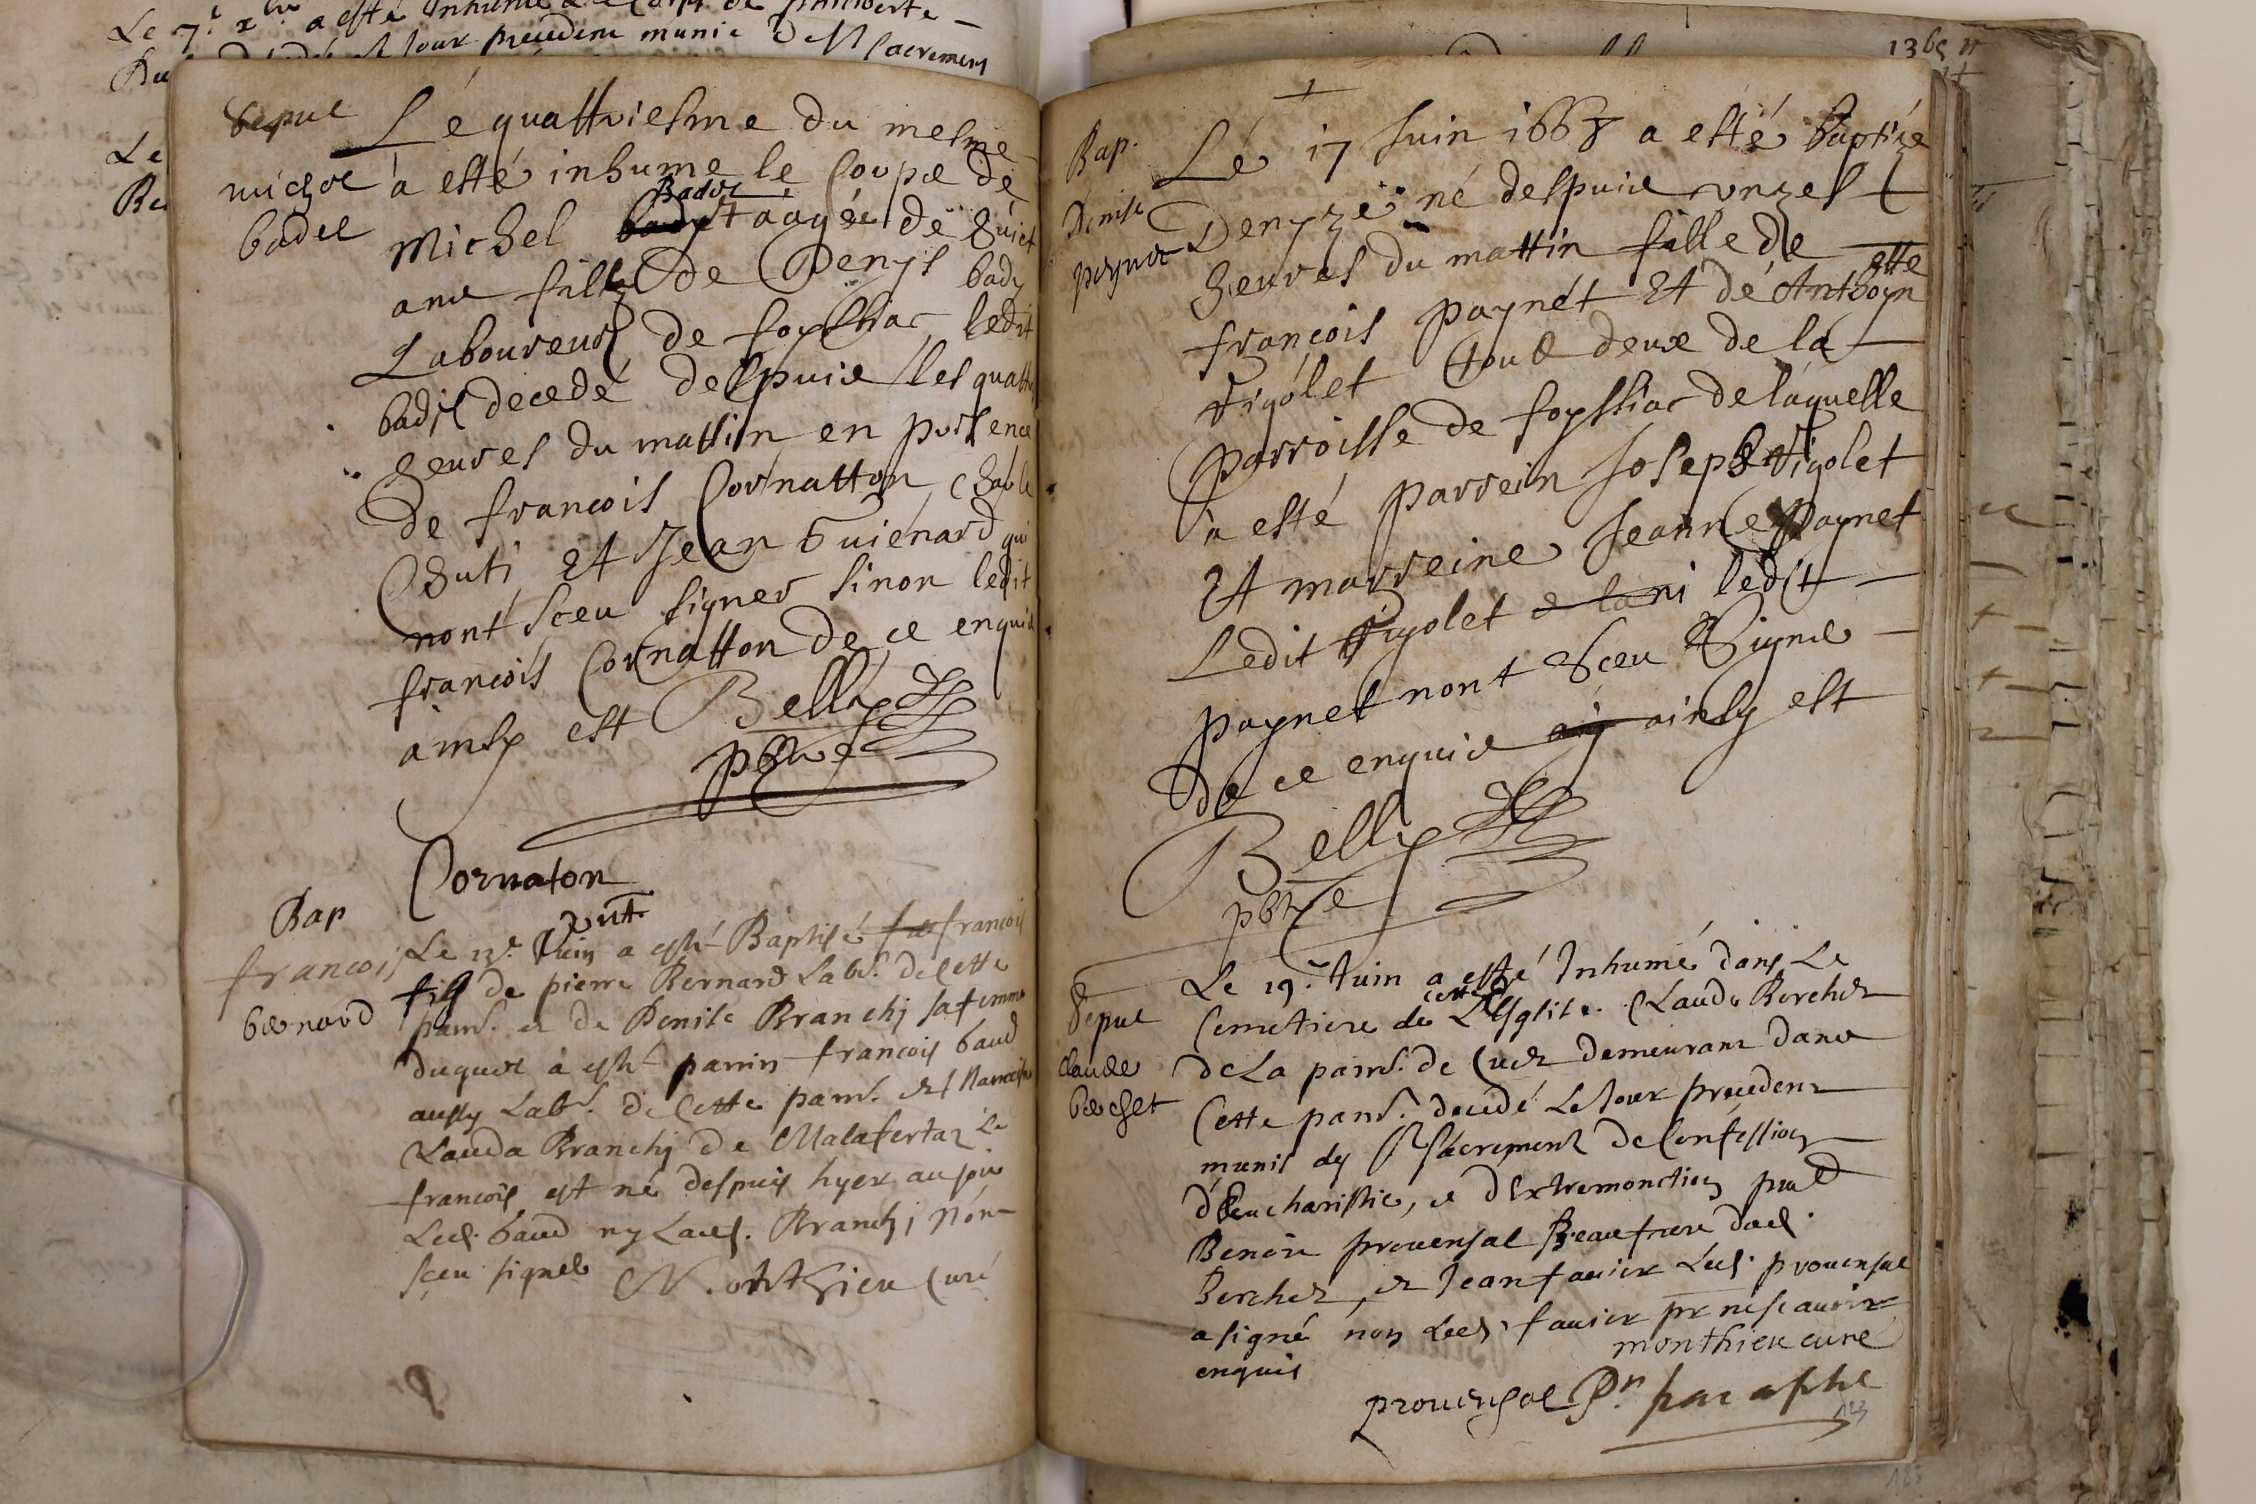 Le 7.e a esté Inhumé
jour precedent munie des Sacremens
Le
sepul
michel
badel
Lé quattriesme du mesme
a esté inhume le Corps de
Badel
Michel aagée de huict
ans fille de Denys bady
Laboureur de foyssiac ledit
bady decedé despuis les quattre
heures du mattin en presence
de francois Cornatton
Et Jean Guienard qui
nont sceu signer sinon ledit
francois Cornatton de ce enquis
ainsy est Belly
pbre
Cornaton
Bap
francois
bernard
Le Juin a esté Baptisé francois
fils de pierre Bernard Labr. de cette
parr. et de Denise Branchy sa femme
duquel a esté parrin francois baud
aussy Labr. de cette parr. et Marraine
Clauda Branchy de Malafertaz Le
francois est né despuis hyer au soir
Led. baud ny Lad. Branchj n'ont
sceu signer Monthieu Curé
1365
Bap.
Denise
poynet
Lé 17 Juin 1668 a esté baptizé
Denyze né despuis unzes
heures du mattin fille de
ette
françois paynét Et dé Anthoyn
Vigólet tout deux de la
parroisse de foyssiac de laquelle
a esté parrein Joseph Vigolet
Et marreine Jeanne paynet
Ledit Vigolet ni ledit
paynet nont Sceu Signe
de ce enquis ainsy est
Belly
pbre
Sepul
claude
berchet
Le 19.e Juin a esté Inhumé dans Le
cette
Cemetiere de L'Esglise. Claude Berchet
de La parr. de Cuet demeurant dans
Cette parr. decedé Le Jour precedent
munis des Sts Sacrements de Confession
d'Eucharistie, et d'Extremonction
Benoit prouensal Beaufrere dud.
Berchet, et Jean fauier Led. prouensal
a signé non Led. fauier pr ne scauoir
enquis monthieu curé
prouensal Pn. paraphe
123
185